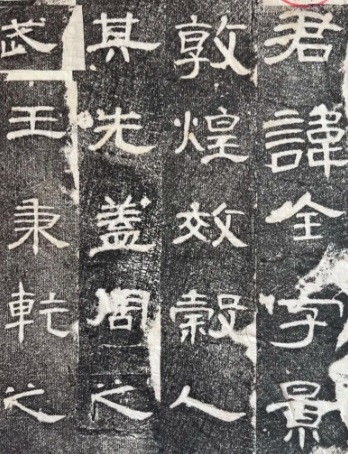 君諱全字景
敦煌效穀人
其先蓋周之
武王秉乾之